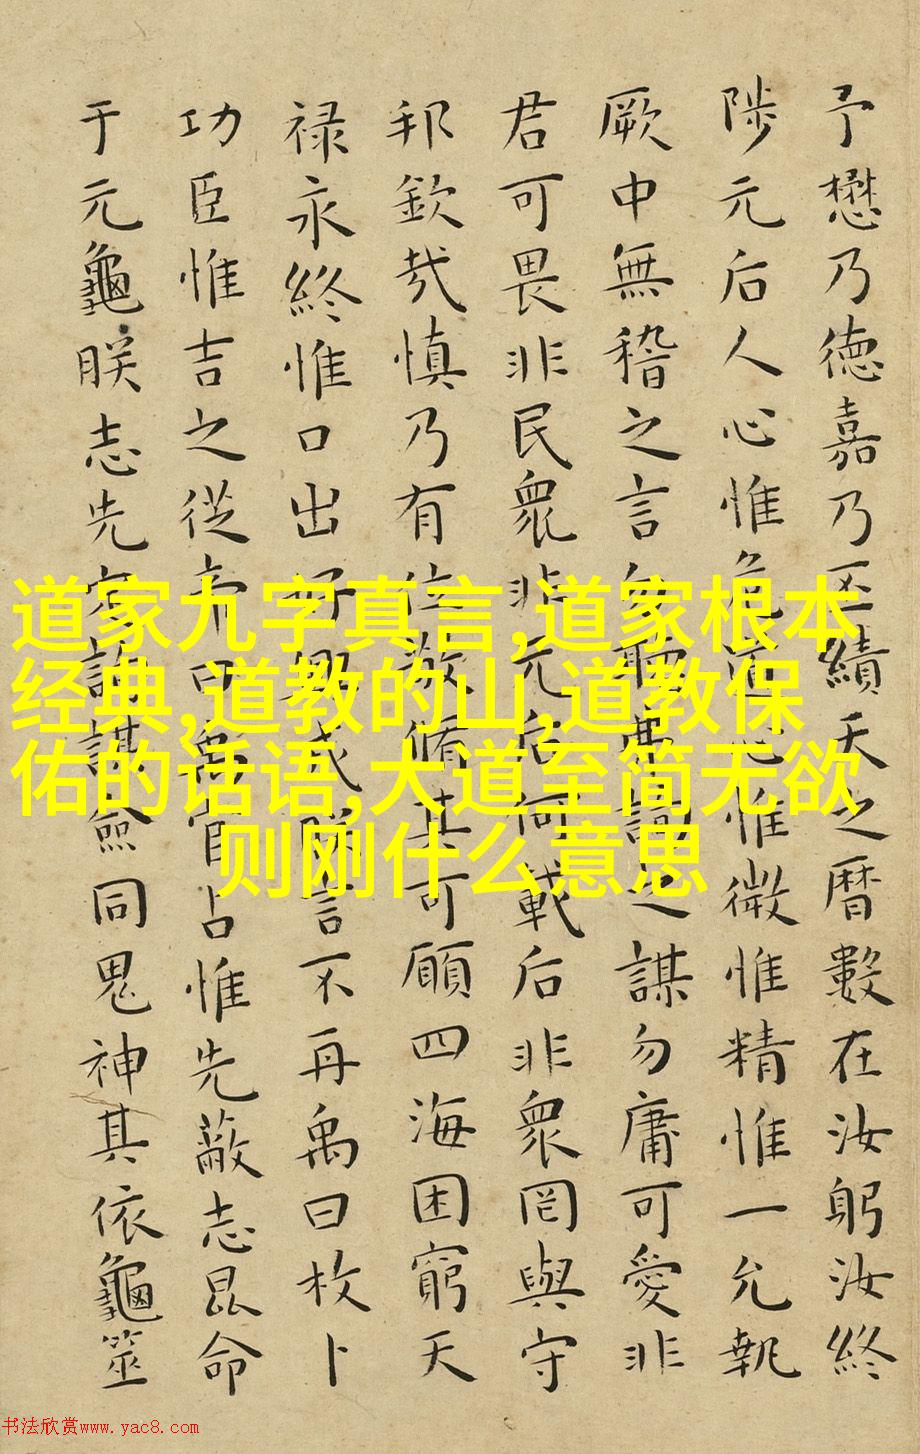 予懋乃德嘉乃丕績天之曆數在汝躬汝終
陟元后人心惟危道心惟微惟精惟一允執
厥中無稽之言勿聽弗詢之謀勿庸可愛非
君可畏非民衆非元后何載后非衆罔與守
邦欽哉慎乃有位敬脩其可願四海困窮天
禄永終惟口出好興戎朕言不再禹曰枚卜
功臣惟吉之從帝曰禹官占惟先蔽志昆命
于元龜朕志先定詢謀僉同鬼神其依龜筮
道家九字真言,道家根本
经典,道教的山,道教保
佑的话语,大道至简无欲
则刚什么意思
书法欣赏www.yac8.com